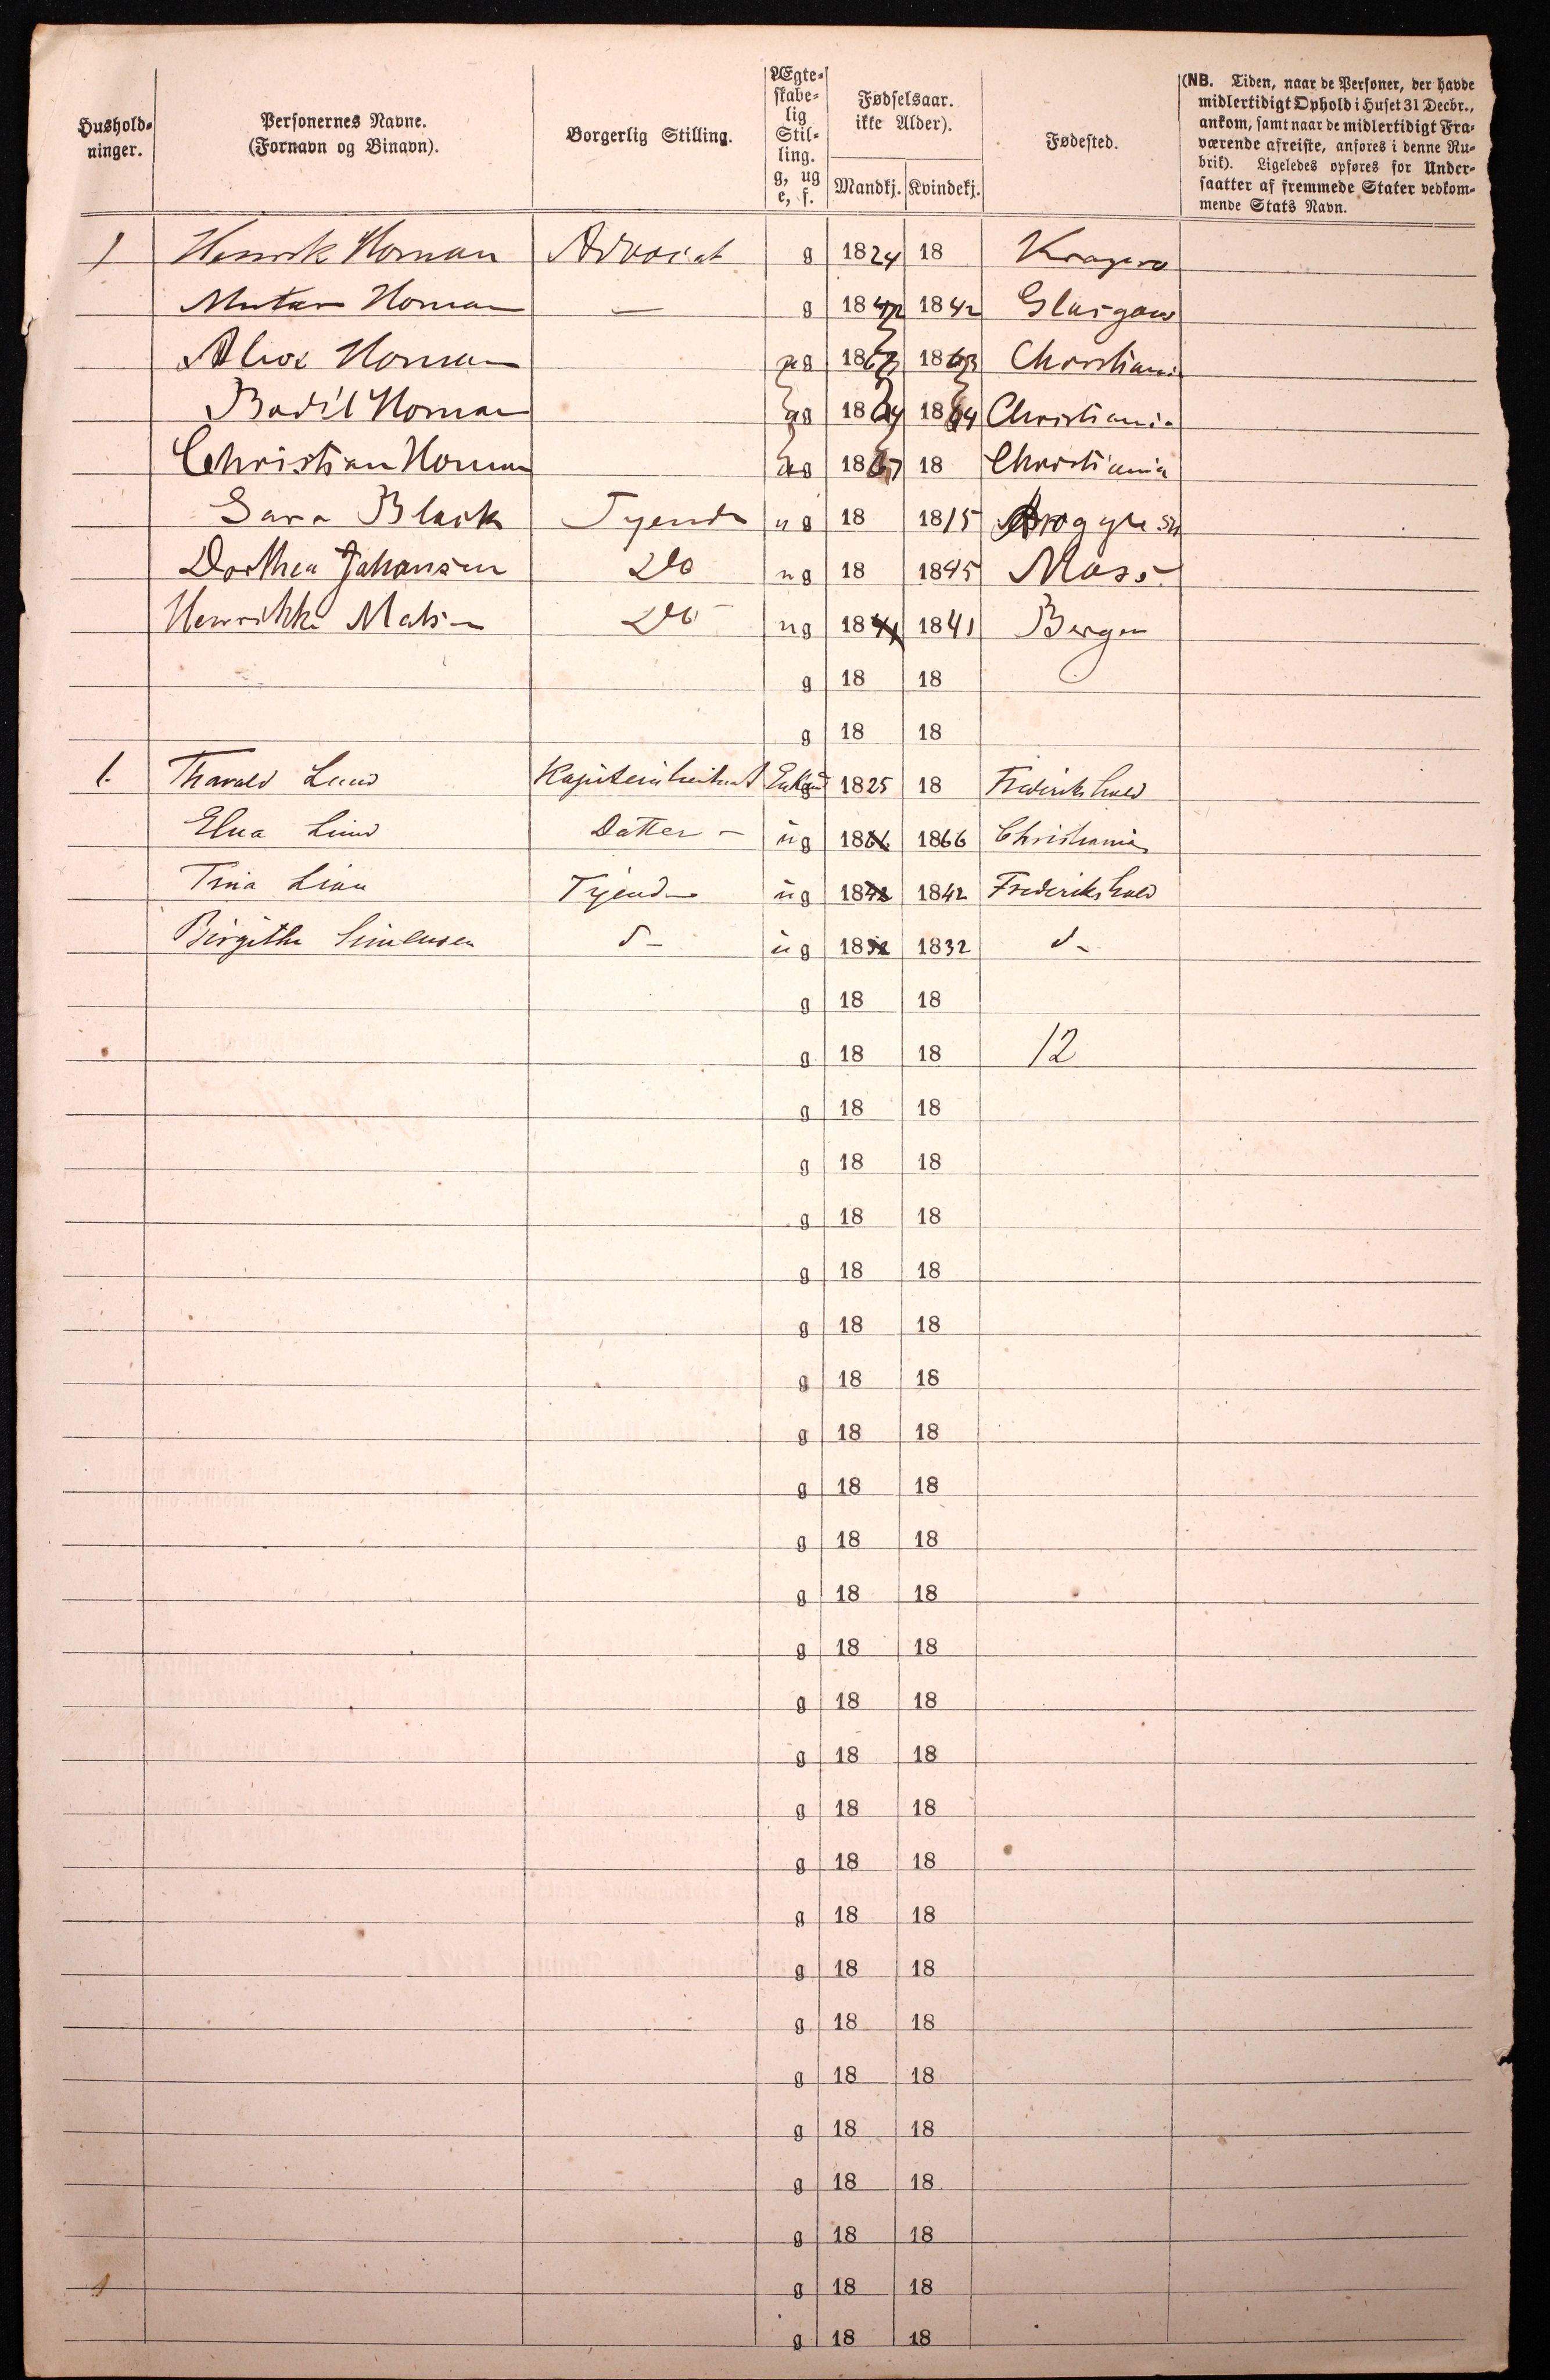 Hushold-
ninger.
Personernes Navne.
(Fornavn og Binavn).
Borgerlig Stilling.
Ægte-
skabe-
lig
Stil-
ling.
g, ug
e, f.
Fødselsaar.
ikke Alder).
Mandkj. Kvindekj.
Fødested.
(NB. Tiden, naar de Personer, der havde
midlertidigt Ophold i Huset 31 Decbr.,
ankom, samt naar de midlertidigt Fra-
værende afreiste, anføres i denne Ru-
brik). Ligeledes opføres for Under-
saatter af fremmede Stater vedkom-
mende Stats Navn.
1 Henrik Homan Advocat g 1824 18 Kragerø
Homan — g 1842 1842 Glasgow
Alice Homan ug 1863 1863 Christiania
Bodil Homan ug 1864 1864 Christiania
Christian Homan ug 1867 18 Christiania
Sara Black Tyende ug 18 1815
Dorthea Johansen Do ug 18 1845 Moss
Henrikke Matsen Do ug 1841 1841 Bergen
g 18 18
g 18 18
1. Tharald Lund Kapiteinleitnant Enkem 1825 18 Frederikshald
Elna Lund Datter – ug 1866 1866 Christiania
Tina Lian Tyende ug 1842 1842 Frederikshald
Birgithe Simensen d– ug 1832 1832 d–
g 18 18
g 18 18 12
g 18 18
g 18 18
g 18 18
g 18 18
g 18 18
g 18 18
g 18 18
g 18 18
g 18 18
g 18 18
g 18 18
g 18 18
g 18 18
g 18 18
g 18 18
g 18 18
g 18 18
g 18 18
g 18 18
g 18 18
g 18 18
g 18 18
g 18 18
g 18 18